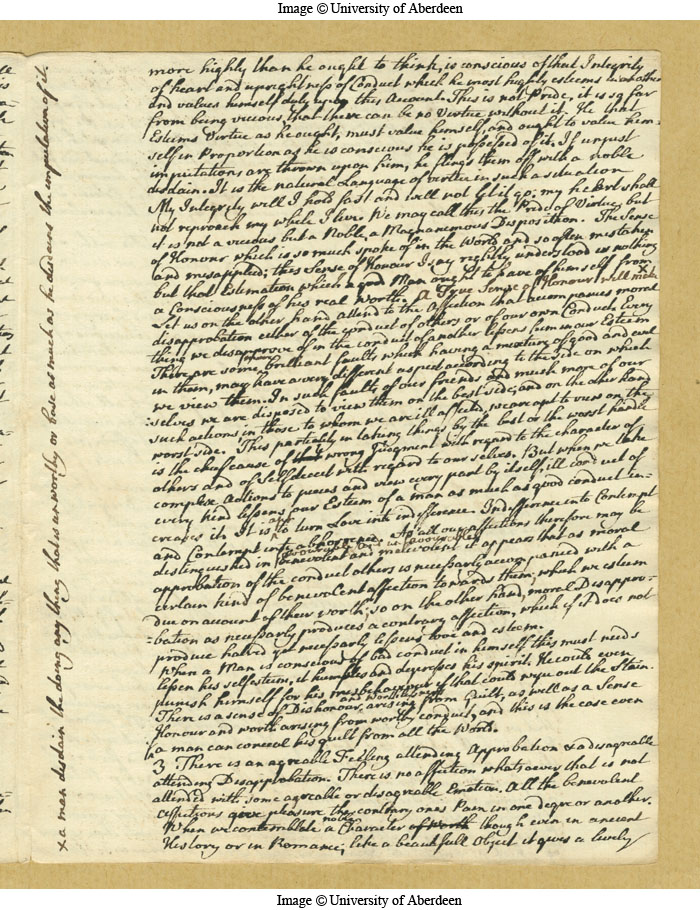 Image © University of Aberdeen
more highly than he ought to think, is conscious of that Integrity
of heart and uprightness of Conduct which he most highly esteems in another
and values himself duly upon this Account. This is not Pride, it is so far
from being vicious, that there can be no Virtue without it. He that
Esteems Virtue as he ought, must value himself, and ought to value him-
self in Proportion as he is conscious he is possessed of it. If unjust
imputations are thrown upon him, he flings them off with a noble
disdain. It is the natural Language of virtue in such a situation
My Integrity will I hold fast and will not let it go; my heart shall
not reproach my while I live. We may call this the Pride of Virtue, but
it is not a vicious but a Noble, a Magnanimous Disposition. The Sense
of Honour which is so much spoke of in the World and so often mistaken
and misapplied; this Sense of Honour I say rightly understood is nothing
but that Estimation which a good Man ought to have of himself from
a Consciousness of his real Worth. A True Sense of Honour will make x
Let us on the other hand attend to the Affection that accompanies moral
disapprobation either of the conduct of others or of our own Conduct. Every
thing we disapprove of in the conduct of another lessens him in our Esteem
There are some brilliant faults which having a mixture of good and evil
in them, may have a very different aspect according to the side on which
we view them. In such faults of our friends and much more of our
selves we are disposed to view them on the best side; and on the other hand
such actions in those to whom we are ill affected, we are apt to view on the
worst side. This partiality in taking things by the best or the worst handle
is the chief cause of wrong Judgment with regard to the character of
others and of Self deceit with regard to our selves. But when we take
complex Actions to pieces and view every part by itself, ill conduct of
every kind lessens our Esteem of a man as much as good conduct in-
creases it. It is apt to turn Love into indifference. Indifference into Contempt
and Contempt into abhorrence. As all our affections therefore may be
distinguished in benevolent and malevolent it appears that as moral
approbation of the conduct others is necessarily accompanied with a
certain kind of benevolent affection towards them, which we esteem
due on account of their worth; so on the other hand, moral Disappro-
-bation as necessarily produces a contrary affection, which if it does not
produce hatred yet necessarily lessens love and esteem.
When a Man is conscious of bad conduct in himself this must needs
lessen his self esteem, it humbles and depresses his spirit. He could even
punish himself for his misbehaviour if that could wipe out the Stain.
There is a sense of Dishonour and worthlessness arising from Guilt, as well as a Sense
Honour and worth arising from worthy conduct, and this is the case even
a man can conceal his guilt from all the World.
3 There is an agreable Feeling attending Approbation & a disagreable
attending Disapprobation. There is no affection whatsoever that is not
attended with some agreable or disagreable Emotion. All the benevolent
affections give pleasure the contrary ones Pain in one degre or another.
When we contemblate a noble Character of Worth though even in ancient
History or in Romance; like a beautifull Object it gives a lively
x a man disdain the doing any thing that is unworthy or base as much as he disdains the imputation of it.
Image © University of Aberdeen